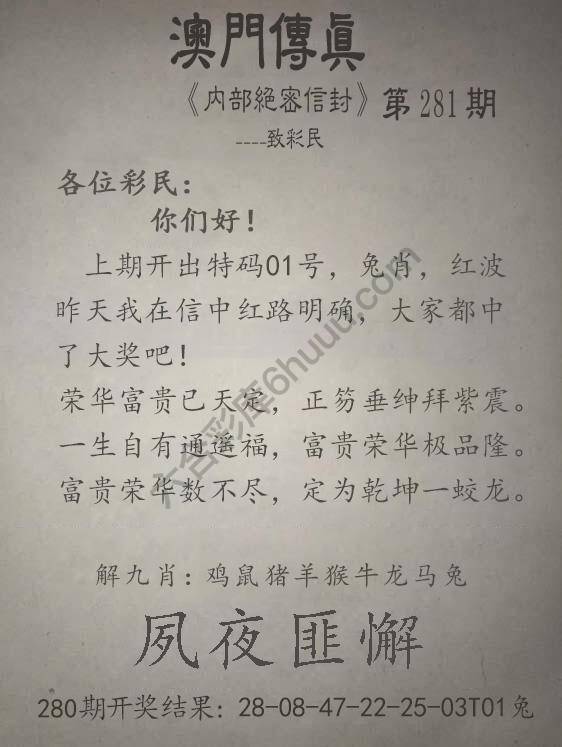 澳門傳眞
《内部絕密信封》第281期
----致彩民
各位彩民：
你们好！
上期开出特码01号，兔肖，红波
昨天我在信中红路明确，大家都中
了大奖吧！
荣华富贵已天定，正笏垂绅拜紫震。
一生自有通遥福，富贵荣华极品隆。
富贵荣华数不尽，定为乾坤一蛟龙。
六合彩库6huuu.com
解九肖：鸡鼠猪羊猴牛龙马兔
夙夜匪懈
280期开奖结果：28-08-47-22-25-03T01兔